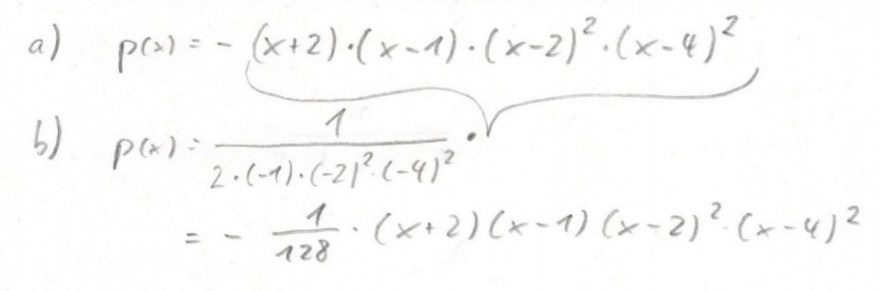 a) p(x) = - (x+2)·(x-1)·(x-2)²·(x-4)²
b) p(x) = 1 / 2·(-1)·(-2)²·(-4)² ·
= - 1/128 · (x+2)(x-1)(x-2)²·(x-4)²